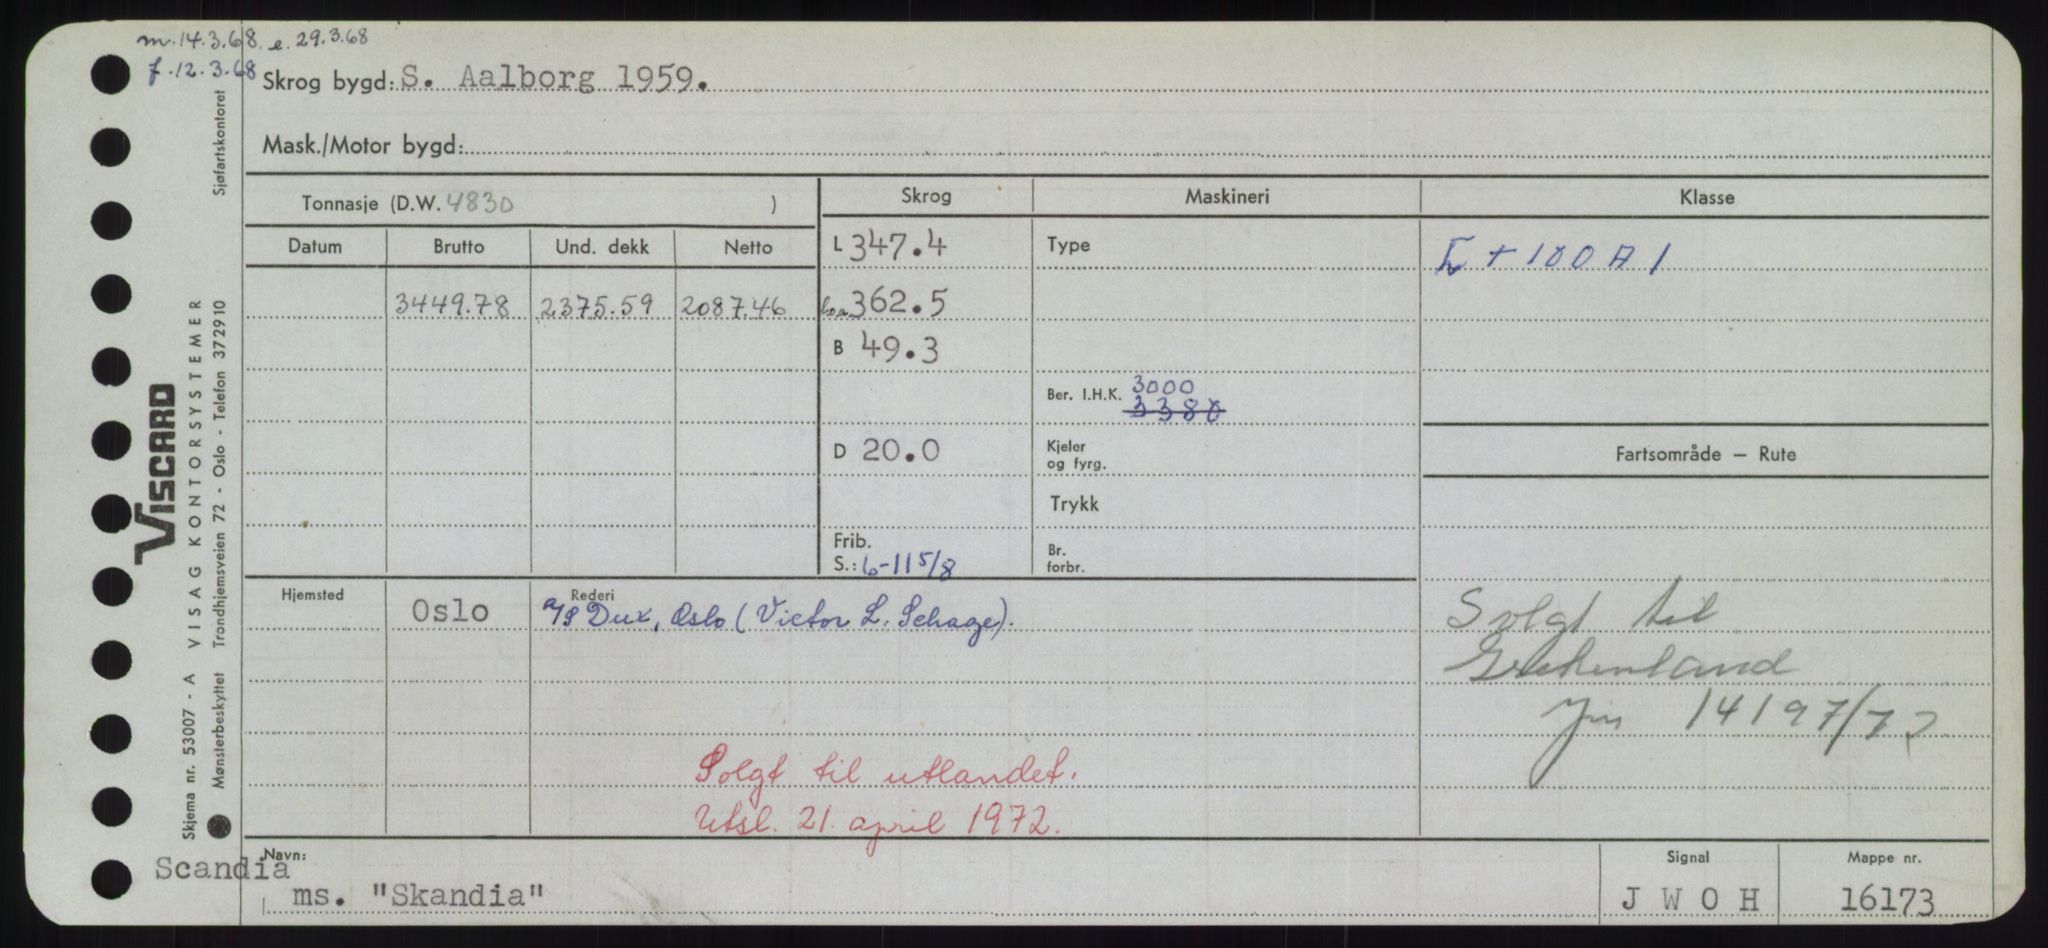 m. 14.3.68. e. 29.3.68
f. 12.3.68
Skrog bygd: S. Aalborg 1959.
Mask./Motor bygd:
Tonnasje (D.W. 4830 )
Skrog
Maskineri
Klasse
Datum
Brutto
Und. dekk
Netto
L 347.4
Type
+ 100 A 1
3449.78
2375.59
2087.46
l.o.a. 362.5
B 49.3
Ber. I.H.K. 3000
3380
D 20.0
Kjeler
og fyrg.
Fartsområde – Rute
Trykk
Frib.
S.: 6-11 5/8
Br.
forbr.
Hjemsted
Oslo
Rederi
A/S Dux, Oslo (Victor L. Schage).
Solgt til
Grekenland
14197/72
Solgt til utlandet.
Utsl. 21. april 1972.
Navn:
Scandia
ms. "Skandia"
Signal
J W O H
Mappe nr.
16173
VISCARD
Skjema nr. 53007 - A VISAG KONTORSYSTEMER
Mønsterbeskyttet Trondhjemsveien 72 - Oslo - Telefon 372910
Sjøfartskontoret